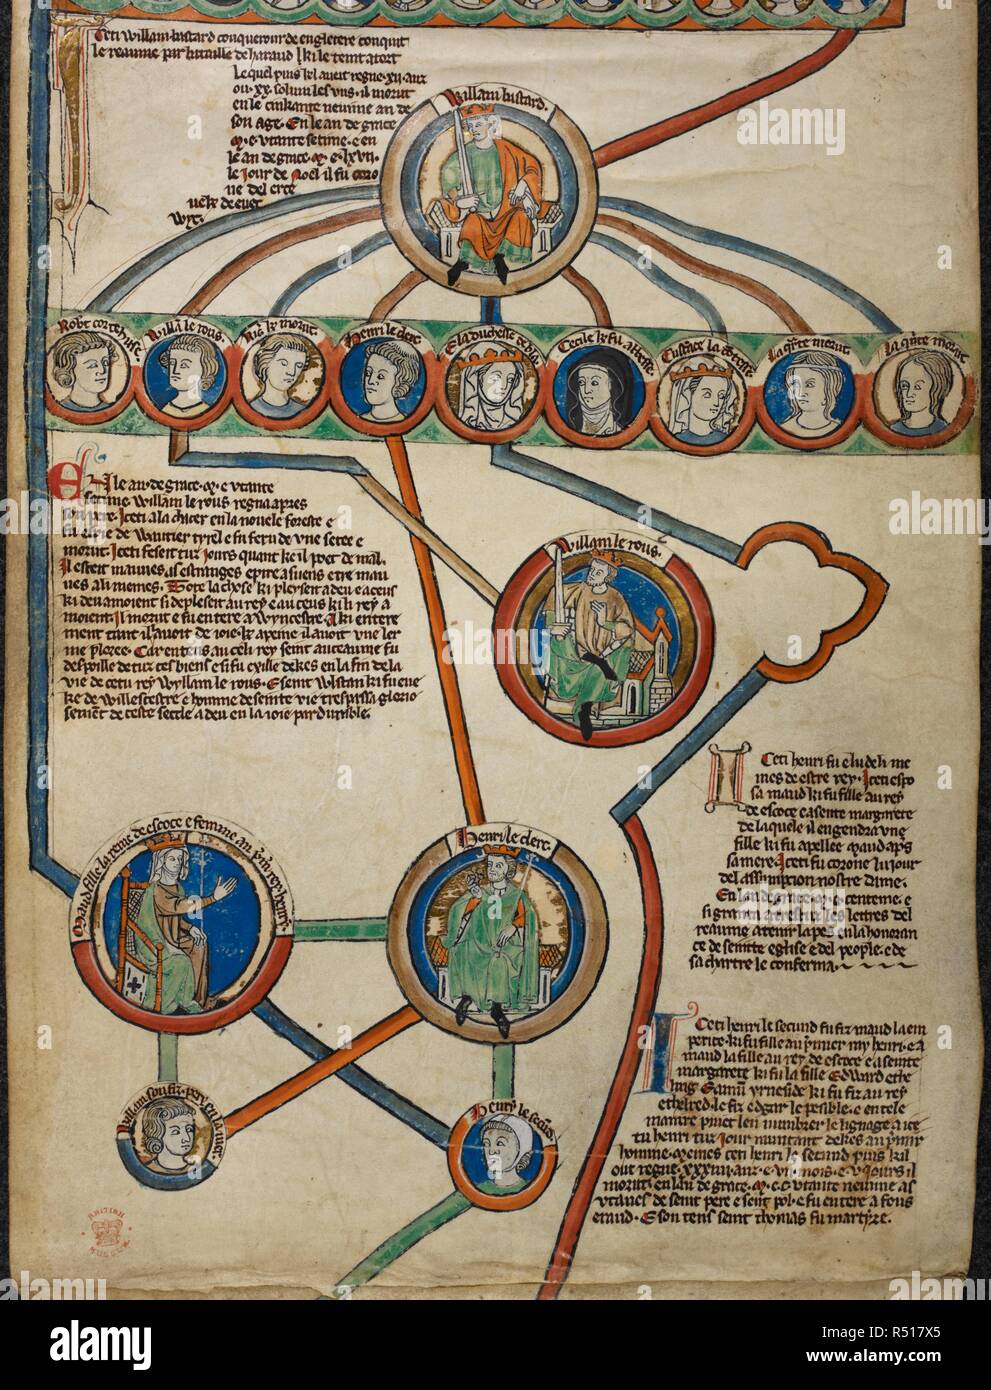 Ceti Willam bastard conquerour de engletere conquit
le reaume par bataille de haraud ki le teint a tort
Le quel puis kel aveit regne .xij. anz
ou .xx. solum les uns. il morut
en le cinkante nevime an de
son age. En le an de grace
en
le an de grace .M. e lxvij.
le jour de Noel il fu coro
ne del erce
veske de ever
wyk.
Willam bastard.
Robt cortehuse
Willã le rous.
Ric k morut
Henri le clerc
E la duchesse de
Cecile k fu abbesse
Eustace la cõtesse
La q̃rte morut
La q̃nte morut
En le an de grace .M. e utante
setime Willam le rous regna apres
son pere. Iceti ala chacer en la novele foreste e
fu de Wautier tyrel e fu feru de une sete e
morut. Iceti feseit tuz jours quant ke il poet de mal.
Il esteit mauveis as estranges e pire as suens e tre mau
ueis a li memes. Tote la chose ki pleyseit a deu e a ceus
ki deu amoient si depleseit au rey e a ceus ki le rey a
moient. Il morut e fu entere a Wyncestre. A ki entere
ment tant il avoit de joie ke a peine il avoit une ler
me ploree. Car en tens au celi rey seint anceaume fu
despoille de tuz ces biens e si fu exille dekes en la fin de la
vie de cetu rey Wyllam le rous. E seint Wlstan ki fu eve
ke de Willecestre e homme de seinte vie trespassa glorio
sement de ceste secle a deu en la joie pardurable.
Willam le rous.
Iceti henri fu esludeli me
mes de estre rey. Iceti espo
sa maud ki fu fille au rey
de escoce e a seinte margarete
de la quele il engendra une
fille ki fu apellee Maud aps
sa mere. Iceti fu corone lu jour
del assumpcion nostre dame.
En lan de grace .M. centeme. e
si granta a les lettres del
reaume a tenir la pes en la honoran
ce de seinte eglise e del people. e de
sa chartre le conferma.
Maud fille la reine de escoce e femme au p̃m̃ rey henry
Henri le clerc.
Iceti henri le secund fu fiz maud la em
perice. ki fu fille au p̃mer rey henri. e a
maud la fille au rey de escoce e a seinte
margarete ki fu la fille Edward ethe
ling Eamũ yrneside ki fu fiz au rey
ethelred. le fiz edgar le pesible. e en tele
manire puet len numbrer le lignage a ice
tu henri tuz jour muntant dekes au p̃mir
homme. Meimes cen henri le secund puis kil
out regne .xxxiiij. anz. e. vj. mois. e. v. jours il
morut. en lan de grace .M. c. e utante nevime as
utaves de seint pere e seint pol. e fu entere a fons
eraud. E son tens seint thomas fu martyre.
Willam son fiz pery en la mer
Henry le secũd
BRITISH
MUSEUM
a alamy stock photo
alamy
Image ID: R517X5
www.alamy.com